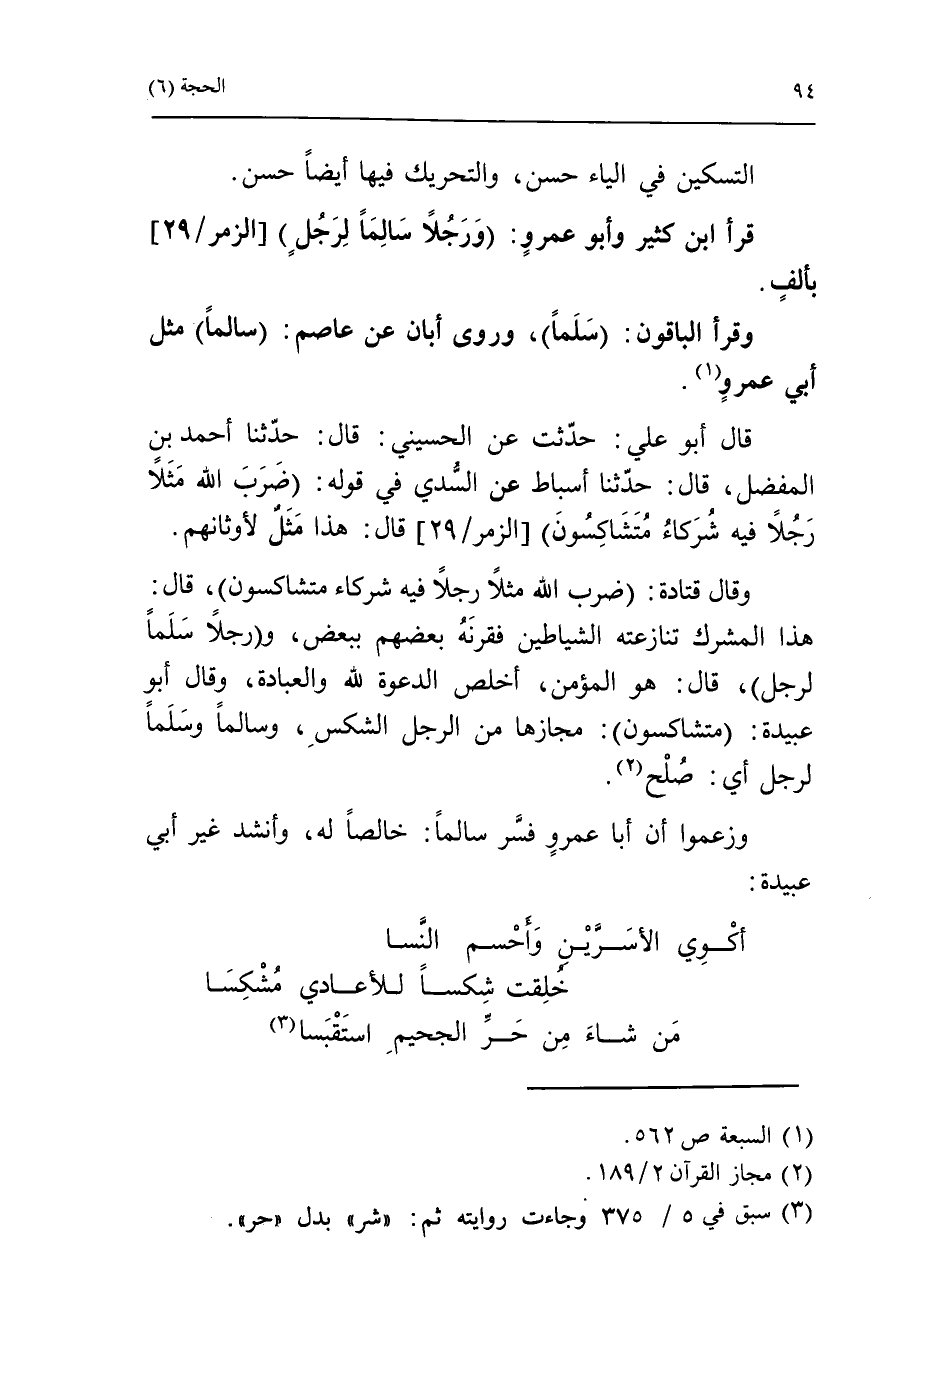 ٩٤ الحجة (٦)
التسكين في الياء حسن، والتحريك فيها أيضاً حسن.
قرأ ابن كثير وأبو عمروٍ: (وَرَجُلًا سَالِمَاً لِرَجُلٍ) [الزمر/٢٩]
بألفٍ.
وقرأ الباقون: (سَلَماً)، وروى أبان عن عاصم: (سالماً) مثل
أبي عمروٍ(١).
قال أبو علي: حدّثت عن الحسيني: قال: حدّثنا أحمد بن
المفضل، قال: حدّثنا أسباط عن السُّدي في قوله: (ضَرَبَ الله مَثَلًا
رَجُلًا فيه شُرَكاءُ مُتَشَاكِسُونَ) [الزمر/٢٩] قال: هذا مَثَلٌ لأوثانهم.
وقال قتادة: (ضرب الله مثلًا رجلًا فيه شركاء متشاكسون)، قال:
هذا المشرك تنازعته الشياطين فقرنَهُ بعضهم ببعض، و(رجلًا سَلَماً
لرجل)، قال: هو المؤمن، أخلص الدعوة لله والعبادة، وقال أبو
عبيدة: (متشاكسون): مجازها من الرجل الشكسِ، وسالماً وسَلَماً
لرجل أي: صُلْح(٢).
وزعموا أن أبا عمروٍ فسَّر سالماً: خالصاً له، وأنشد غير أبي
عبيدة:
أكْوِي الأسَرَّيْنِ وَأَحْسم النَّسا
خُلِقت شِكساً للأعادي مُشْكِسَا
مَن شاءَ مِن حَرِّ الجحيمِ استَقْبَسا(٣)
(١) السبعة ص ٥٦٢.
(٢) مجاز القرآن ١٨٩/٢.
(٣) سبق في ٥ / ٣٧٥ وجاءت روايته ثم: «شر» بدل «حر».